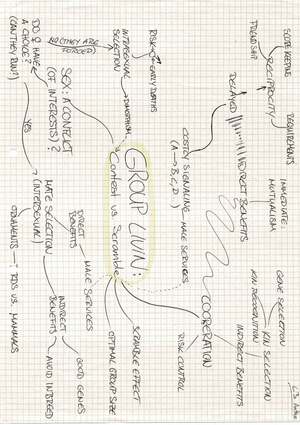 SCORE KEEPING
REQUIREMENTS
RECIPROCITY
FRIENDSHIP
DELAYED
INDIRECT BENEFITS
IMMEDIATE:
MUTUALISM
GENE SELECTION
KIN SELECTION
KIN RECOGNITION
INDIRECT BENEFITS
COOPERATION
RISK CONTROL
COSTLY SIGNALING
(A→B,C,D)
MALE SERVICES
RISK
EARLY DEATHS
INTRASEXUAL
SELECTION
DIMORPHISM
NO (THEY ARE
FORCED)
SEX: A CONFLICT
(OF INTERESTS)?
DO ♀ HAVE
A CHOICE?
(CAN THEY RUN?)
YES
GROUP LIVIN:
Contest vs. Scramble
SCRAMBLE EFFECT
OPTIMAL GROUP SIZE
MATE SELECTION
(INTERSEXUAL)
DIRECT
BENEFITS
MALE SERVICES
INDIRECT
BENEFITS
GOOD GENES
AVOID INBREED
ORNAMENTS
VS. MAMMALS